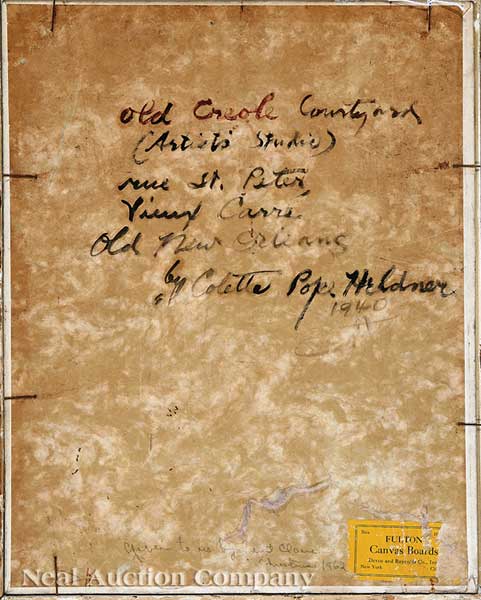 Old Creole Courtyard
(Artists' Studio)
rue St. Peter
Vieux Carré
Old New Orleans
by Colette Pope Heldner
1940
Given to us by
FULTON
Canvas Boards
Devoe and Raynolds Co., Inc
New York
Neal Auction Company